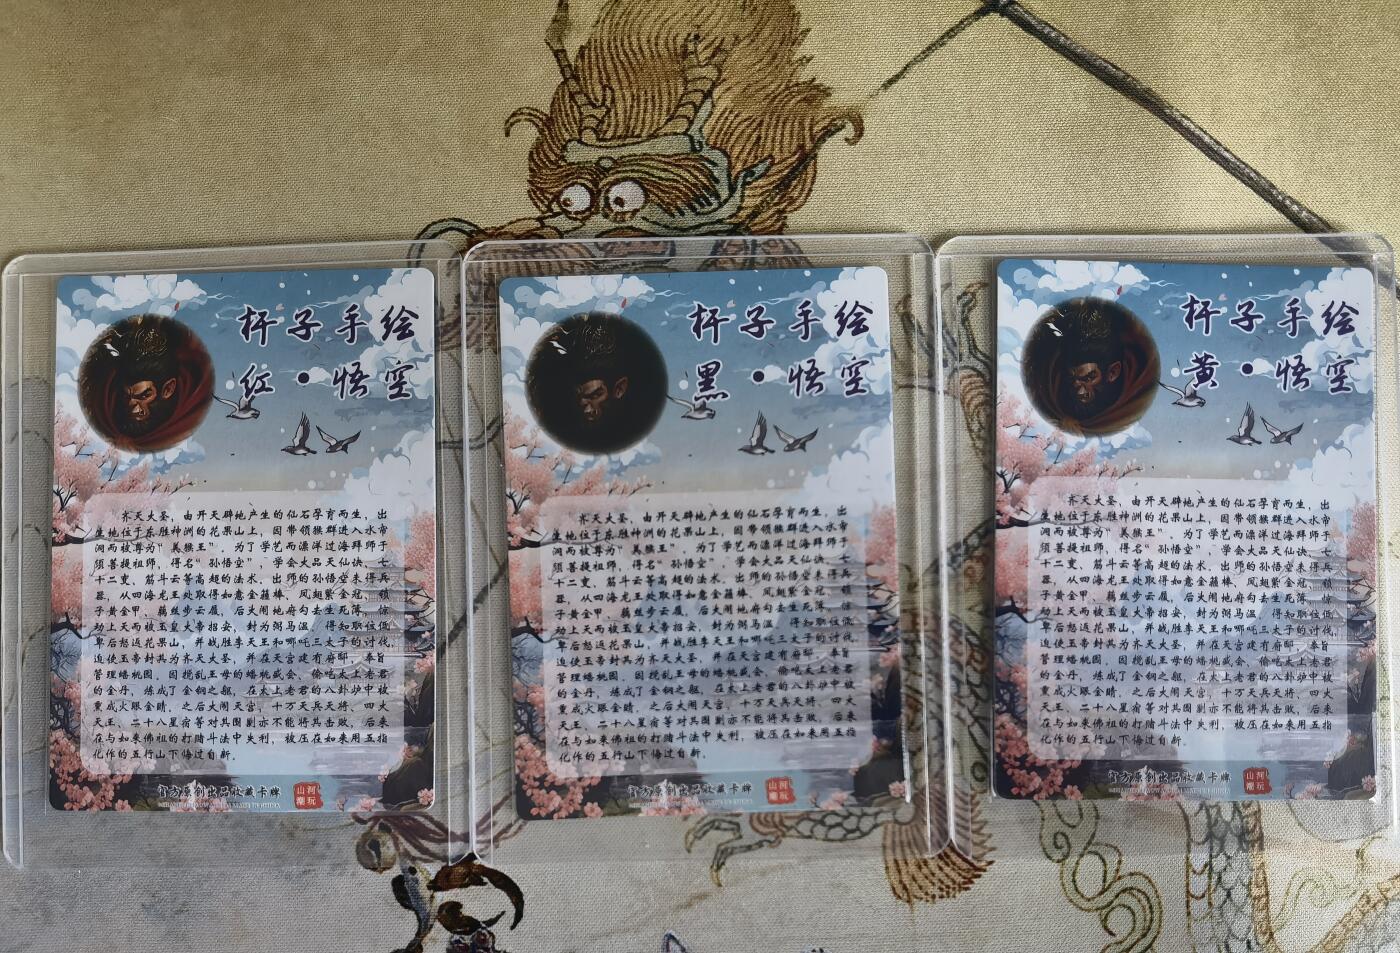 杆子手绘
红·悟空
齐天大圣，由开天辟地产生的仙石孕育而生，出
生地位于东胜神洲的花果山上，因带领猴群进入水帘
洞而被尊为“美猴王”。为了学艺而漂洋过海拜师于
须菩提祖师，得名“孙悟空”，学会大品天仙诀、七
十二变、筋斗云等高超的法术。出师的孙悟空未得兵
器，从四海龙王处取得如意金箍棒、凤翅紫金冠、锁
子黄金甲、藕丝步云履，后大闹地府勾去生死簿，惊
动上天而被玉皇大帝招安，封为弼马温，得知职位低
卑后怒返花果山，并战胜李天王和哪吒三太子的讨伐，
迫使玉帝封其为齐天大圣，并在天宫建有府邸，奉旨
管理蟠桃园。因搅乱王母的蟠桃盛会、偷吃太上老君
的金丹，炼成了金钢之躯，在太上老君的八卦炉中被
熏成火眼金睛，之后大闹天宫，十万天兵天将、四大
天王、二十八星宿等对其围剿亦不能将其击败，后来
在与如来佛祖的打赌斗法中失利，被压在如来用五指
化作的五行山下悔过自新。
官方原创出品收藏卡牌
山河
潮玩
杆子手绘
黑·悟空
齐天大圣，由开天辟地产生的仙石孕育而生，出
生地位于东胜神洲的花果山上，因带领猴群进入水帘
洞而被尊为“美猴王”。为了学艺而漂洋过海拜师于
须菩提祖师，得名“孙悟空”，学会大品天仙诀、七
十二变、筋斗云等高超的法术。出师的孙悟空未得兵
器，从四海龙王处取得如意金箍棒、凤翅紫金冠、锁
子黄金甲、藕丝步云履，后大闹地府勾去生死簿，惊
动上天而被玉皇大帝招安，封为弼马温，得知职位低
卑后怒返花果山，并战胜李天王和哪吒三太子的讨伐，
迫使玉帝封其为齐天大圣，并在天宫建有府邸，奉旨
管理蟠桃园。因搅乱王母的蟠桃盛会、偷吃太上老君
的金丹，炼成了金钢之躯，在太上老君的八卦炉中被
熏成火眼金睛，之后大闹天宫，十万天兵天将、四大
天王、二十八星宿等对其围剿亦不能将其击败，后来
在与如来佛祖的打赌斗法中失利，被压在如来用五指
化作的五行山下悔过自新。
官方原创出品收藏卡牌
山河
潮玩
杆子手绘
黄·悟空
齐天大圣，由开天辟地产生的仙石孕育而生，出
生地位于东胜神洲的花果山上，因带领猴群进入水帘
洞而被尊为“美猴王”。为了学艺而漂洋过海拜师于
须菩提祖师，得名“孙悟空”，学会大品天仙诀、七
十二变、筋斗云等高超的法术。出师的孙悟空未得兵
器，从四海龙王处取得如意金箍棒、凤翅紫金冠、锁
子黄金甲、藕丝步云履，后大闹地府勾去生死簿，惊
动上天而被玉皇大帝招安，封为弼马温，得知职位低
卑后怒返花果山，并战胜李天王和哪吒三太子的讨伐，
迫使玉帝封其为齐天大圣，并在天宫建有府邸，奉旨
管理蟠桃园。因搅乱王母的蟠桃盛会、偷吃太上老君
的金丹，炼成了金钢之躯，在太上老君的八卦炉中被
熏成火眼金睛，之后大闹天宫，十万天兵天将、四大
天王、二十八星宿等对其围剿亦不能将其击败，后来
在与如来佛祖的打赌斗法中失利，被压在如来用五指
化作的五行山下悔过自新。
官方原创出品收藏卡牌
山河
潮玩